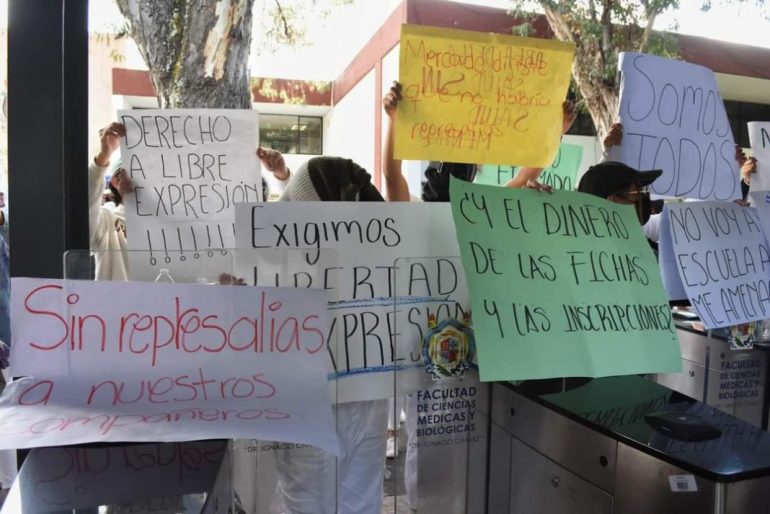 DERECHO
A LIBRE
EXPRESIÓN
!!!!!!
Mercado dijiste
que no habría
represalias
Somos
TODOS
Exigimos
LIBERTAD
¿Y EL DINERO
DE LAS FICHAS
Y LAS INSCRIPCIONES?
NO VOY A
ESCUELA A
ME AMENA
Sin represalias
a nuestros
compañeros.
FACULTAD
DE CIENCIAS
MÉDICAS Y
BIOLÓGICAS
"DR. IGNACIO CHÁVEZ"
FACULTAD
DE CIENCIAS
MÉDICAS Y
BIOLÓGICAS